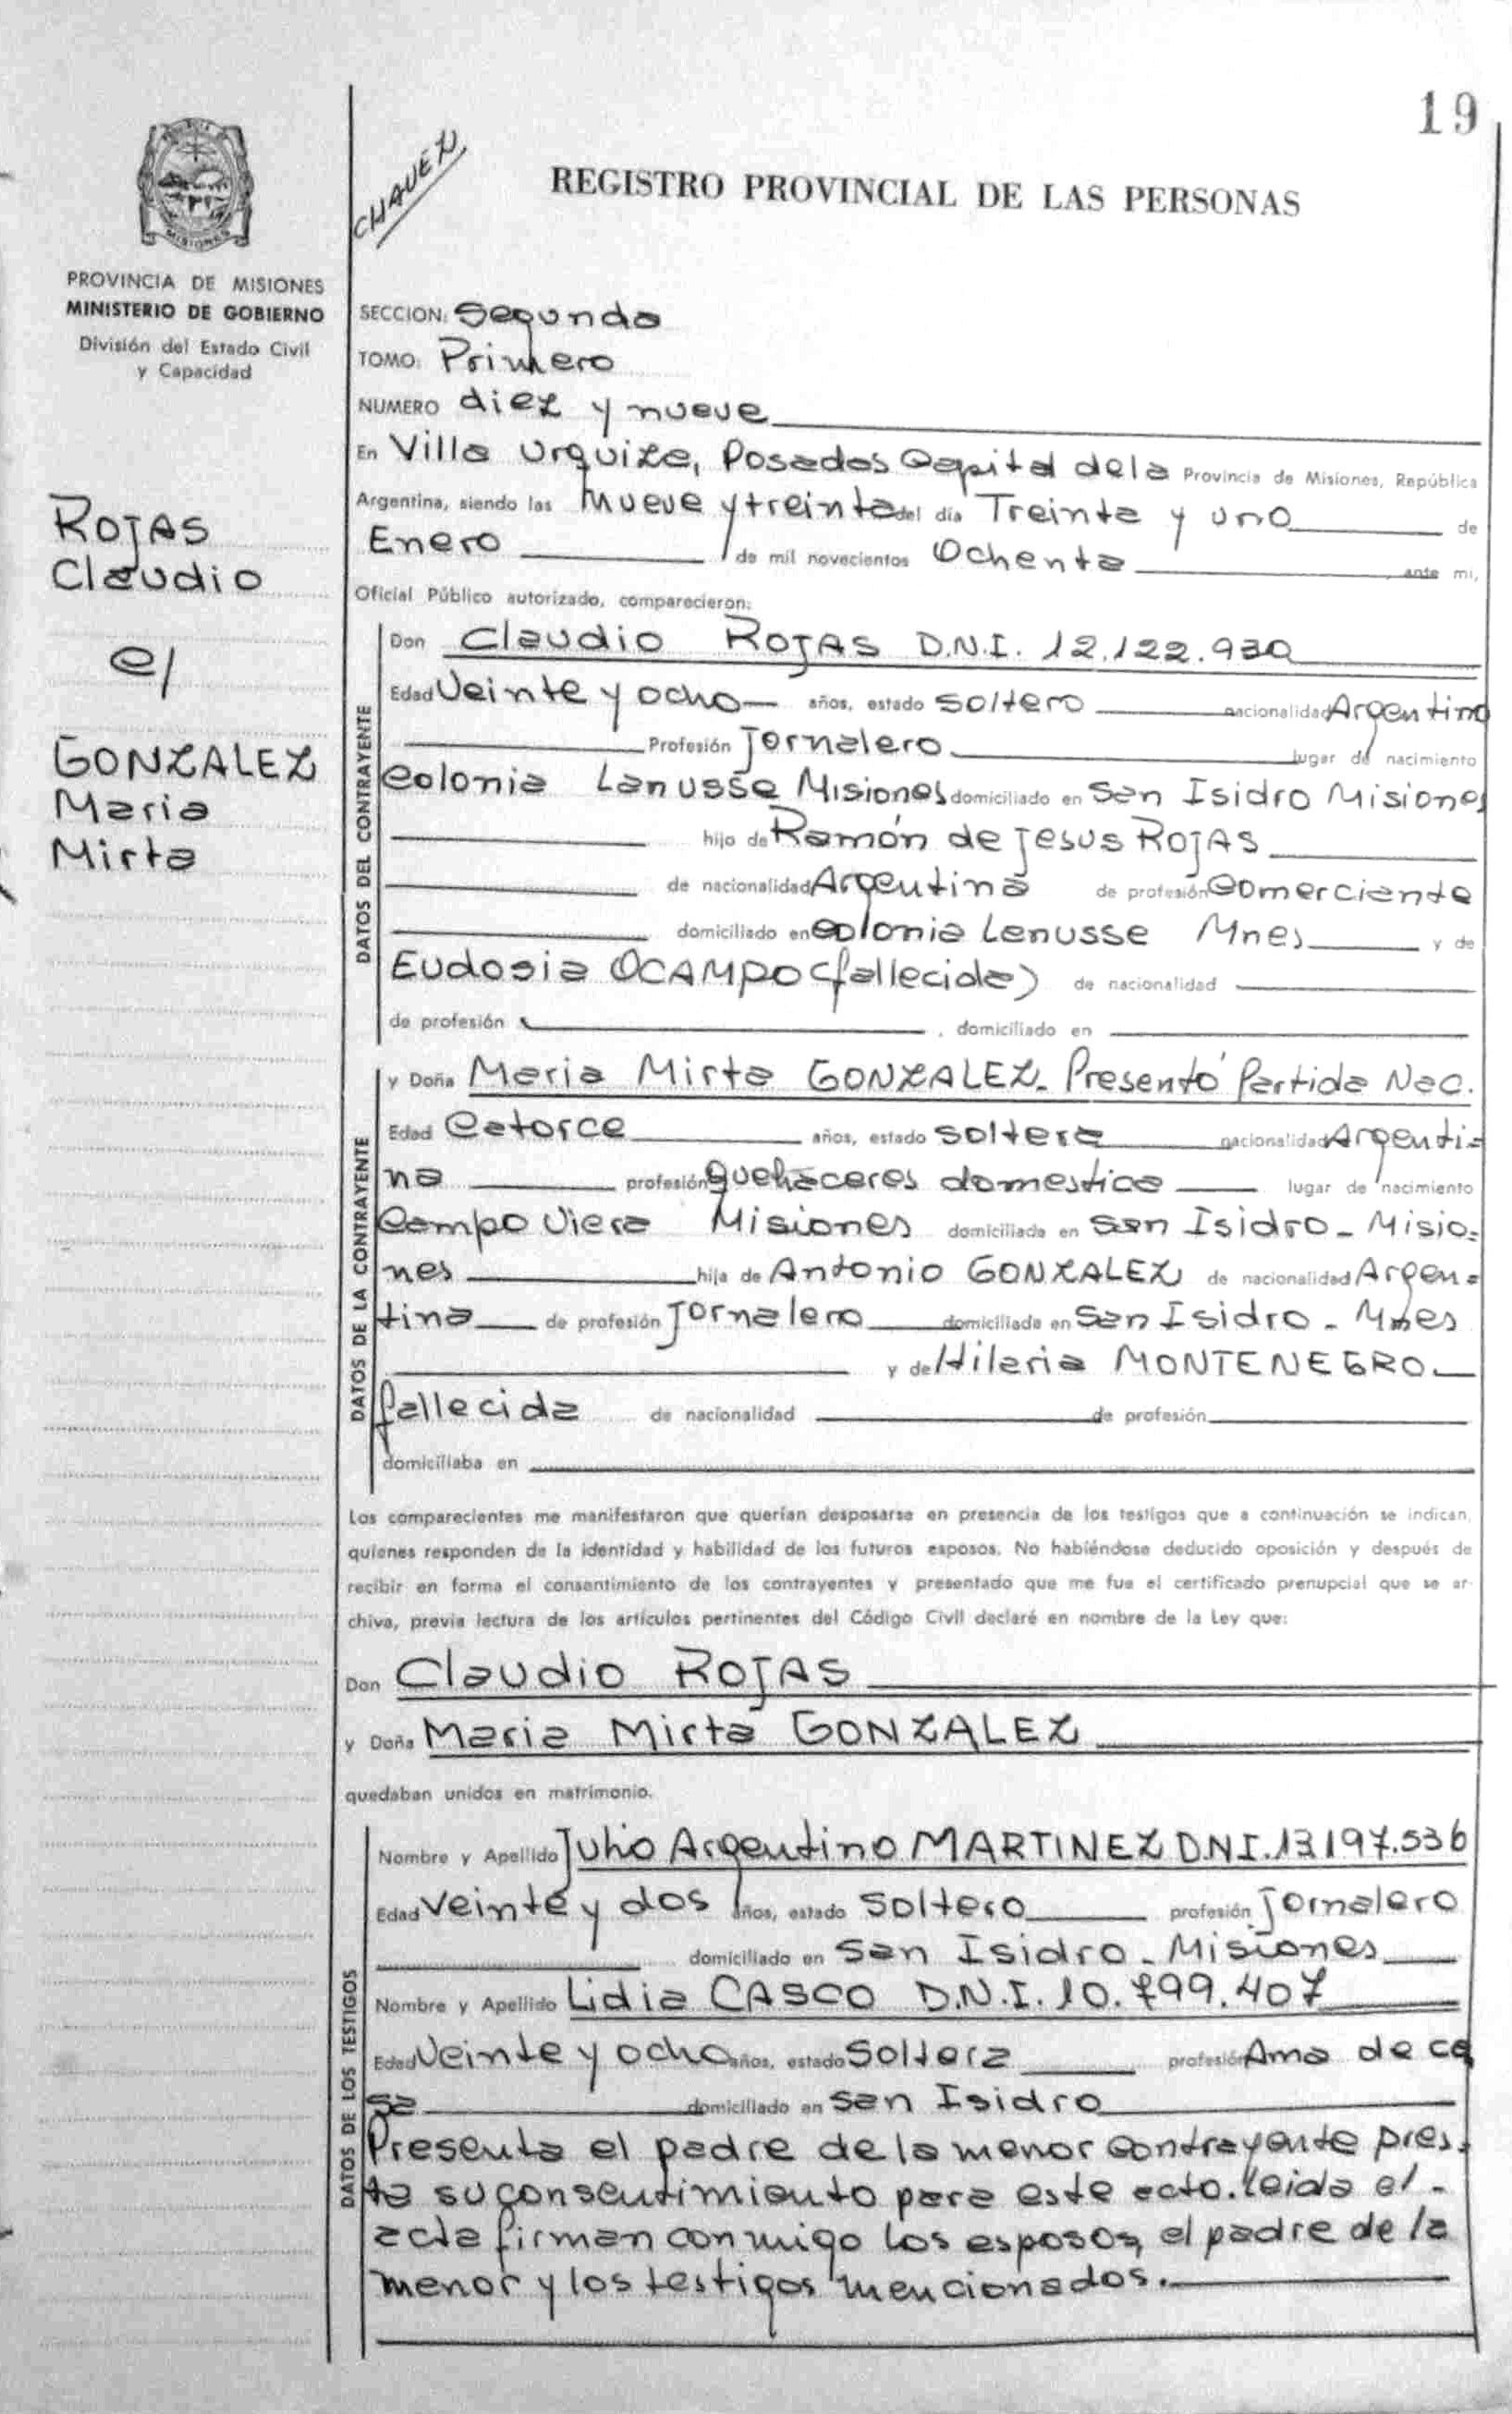 19
CHAVEZ
REGISTRO PROVINCIAL DE LAS PERSONAS
MISIONES
PROVINCIA DE MISIONES
MINISTERIO DE GOBIERNO
División del Estado Civil
y Capacidad
ROJAS
Claudio
c/
GONZALEZ
Maria
Mirta
SECCION: Segunda
TOMO: Primero
NUMERO diez y nueve
En Villa Urquiza, Posadas Capital de la Provincia de Misiones, República
Argentina, siendo las Nueve y treinta del día Treinta y uno de
Enero de mil novecientos Ochenta ante mi,
Oficial Público autorizado, comparecieron:
DATOS DEL CONTRAYENTE
Don Claudio ROJAS D.N.I. 12.122.930
Edad Veinte y ocho años, estado soltero nacionalidad Argentino
Profesión Jornalero lugar de nacimiento
Colonia Lanusse Misiones domiciliado en San Isidro Misiones
hijo de Ramón de Jesus ROJAS
de nacionalidad Argentina de profesión Comerciante
domiciliado en Colonia Lanusse Mnes y de
Eudosia OCAMPO (fallecida) de nacionalidad
de profesión , domiciliado en
DATOS DE LA CONTRAYENTE
y Doña Maria Mirta GONZALEZ. Presentó Partida Nac.
Edad Catorce años, estado soltera nacionalidad Argenti=
na profesión quehaceres domestico lugar de nacimiento
Campo Viera Misiones domiciliada en San Isidro - Misio=
nes hija de Antonio GONZALEZ de nacionalidad Argen=
tina de profesión Jornalero domiciliado en San Isidro - Mnes
y de Hilaria MONTENEGRO
fallecida de nacionalidad de profesión
domiciliaba en
Los comparecientes me manifestaron que querían desposarse en presencia de los testigos que a continuación se indican,
quienes responden de la identidad y habilidad de los futuros esposos. No habiéndose deducido oposición y después de
recibir en forma el consentimiento de los contrayentes y presentado que me fue el certificado prenupcial que se ar-
chiva, previa lectura de los artículos pertinentes del Código Civil declaré en nombre de la Ley que:
Don Claudio ROJAS
y Doña Maria Mirta GONZALEZ
quedaban unidos en matrimonio.
DATOS DE LOS TESTIGOS
Nombre y Apellido Julio Argentino MARTINEZ D.N.I. 13197.536
Edad Veinte y dos años, estado Soltero profesión Jornalero
domiciliado en San Isidro - Misiones
Nombre y Apellido Lidia CASCO D.N.I. 10.799.407
Edad Veinte y ocho años, estado Soltera profesión Ama de ca
sa domiciliado en San Isidro
Presente el padre de la menor contrayente pres-
ta su consentimiento para este acto. leida el -
acta firman conmigo los esposos, el padre de la
menor y los testigos mencionados.